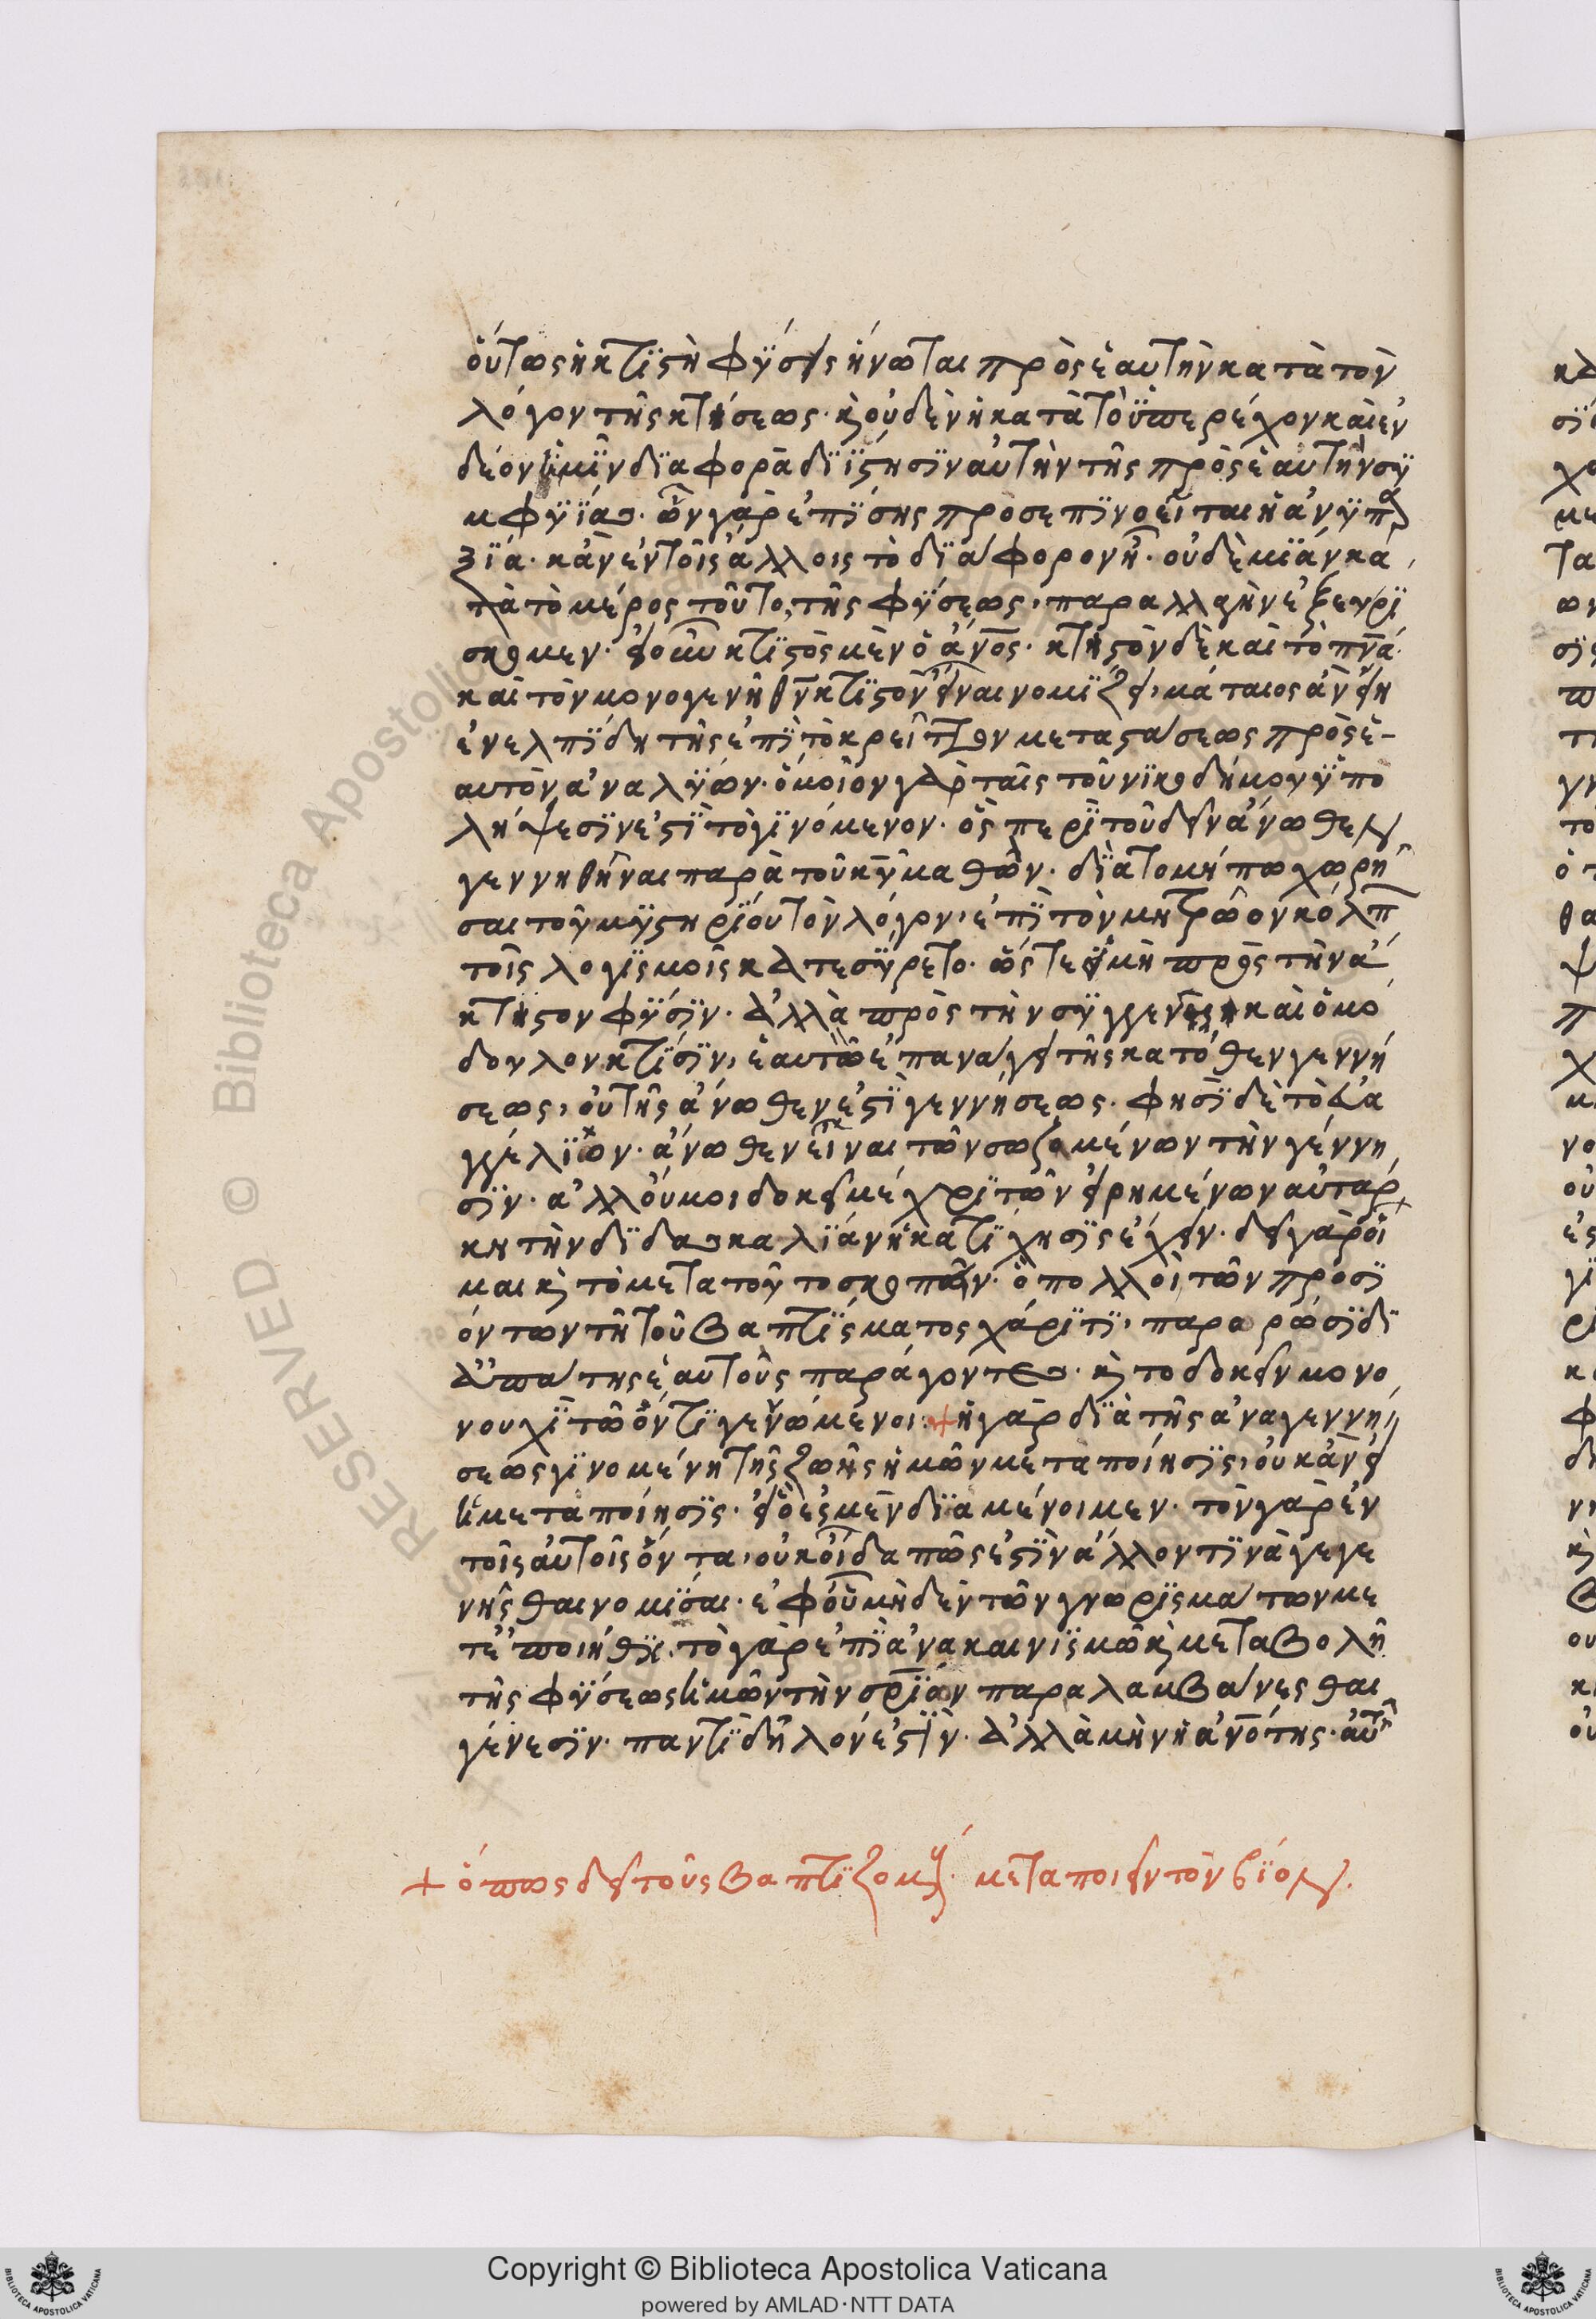 οὕτως ἡ κτϊστὴ φΰσις ἥνωται πρὸς ἑαυτὴν κατὰ τὸν
λόγον τῆς κτήσεως· κ οὐδὲν ἡ κατὰ τὸ ὑπερέχον κ αὶ ἐν
δέον ἡμῖν δϊαφορὰ δϊΐστησϊν αὐτὴν τῆς πρὸς ἑαυτὴν σϋ
μφϋΐας· ὧν γὰρ ἐπΐσης προσεπϊνοεῖται ἡ ἀνϋπαρ
ξΐα· κἂν ἐν τοῖς ἄλλοις τὸ δϊάφορον ῇ· οὐδὲ μϊὰν κα
τὰ τὸ μέρος τοῦτο, τῆς φΰσεως, παραλλαγὴν ἐξευρΐ
σκομεν· εἰ οὖν κτϊστὸς μὲν ὁ ἄνος· κτηστὸν δὲ καὶ τὸ πνα
καὶ τὸν μονογενῆ θν κτϊστὸν εἶναι νομΐζει, μάταιος ἂν εἴη
ἐν ἐλπΐδη τῆς ἐπῒ τὸ κρεῖττον μεταστάσεως πρὸς ἑ-
αυτὸν ἀναλΰων· ὅμοιον γὰρ ταῖς τοῦ νϊκοδήμου ὑπο
λήψεσϊν ἐστῒ τὸ γϊνόμενον· ὃς περῒ τοῦ δεῖν ἄνωθεν
γεννηθῆναι παρὰ τοῦ κυ μαθὼν· δϊὰ τὸ μήπω χωρῆ
σαι τοῦ μϋστηρΐου τὸν λόγον, ἐπῒ τὸν μητρῶον κόλπ
τοῖς λογϊσμοῖς κατεσΰρετο· ὥστε εἰ μὴ πρὸς τὴν ἄ
κτηστον φΰσϊν· ἀλλὰ πρὸς τὴν σϋγγενῆ καὶ ὁμό
δουλον κτΐσϊν, ἑαυτὸν ἐπανάγει τῆς κάτωθεν γεννή
σεως, οὐ τῆς ἄνωθεν ἐστῒ γεννήσεως· φησῒ δὲ τὸ εὐα
γγέλϊον· ἄνωθεν εἶναι τῶν σωζομένων τὴν γέννη
σϊν· ἀλλ' οὔ μοι δοκεῖ μέχρϊ τῶν εἰρημένων αὐτάρ
κη τὴν δϊδασκαλΐαν ἡ κατΐχησϊς ἔχειν· δεῖ γὰρ οἶ
μαι κ τὸ μετὰ τοῦτο σκοπεῖν· ὃ πολλοὶ τῶν προσϊ
όντων τῆ τοῦ βαπτΐσματος χάρϊτϊ, παρορῶσϊ δϊ
ἀπάτης ἑαυτοὺς παράγοντες· κ τὸ δοκεῖν μόνο
ν οὐχῒ τῶ ὄντϊ γεννώμενοι· + ἡ γὰρ δϊὰ τῆς ἀναγεννή
σεως γϊνομένη τῆς ζωῆς ἡμῶν μεταποίησϊς, οὐκ ἂν εἴ
η μεταποίησϊς· εἰ ὃ ἐσμὲν δϊαμένοιμεν· τὸν γὰρ ἐν
τοῖς αὐτοῖς ὄντα, οὐκ οἶδα πῶς ἐστῒν ἄλλον τϊνὰ γεγε
νῆσθαι νομῖσαι· ἐφ' οὗ μηδὲν τῶν γνωρϊσμάτων με
τεποιήθϊ· τὸ γὰρ ἐπῒ ἀνακαινϊσμῶ κ μεταβολῆ
τῆς φΰσεως ἡμῶν τὴν σρϊαν παραλαμβάνεσθαι
γένεσϊν· παντῒ δῆλον ἐστῒν· ἀλλὰ μὴν ἡ ἀνότης· αὐτ
+ ὅπως δεῖ τοὺς βαπτϊζομεν· μεταποιεῖν τὸν βΐον.